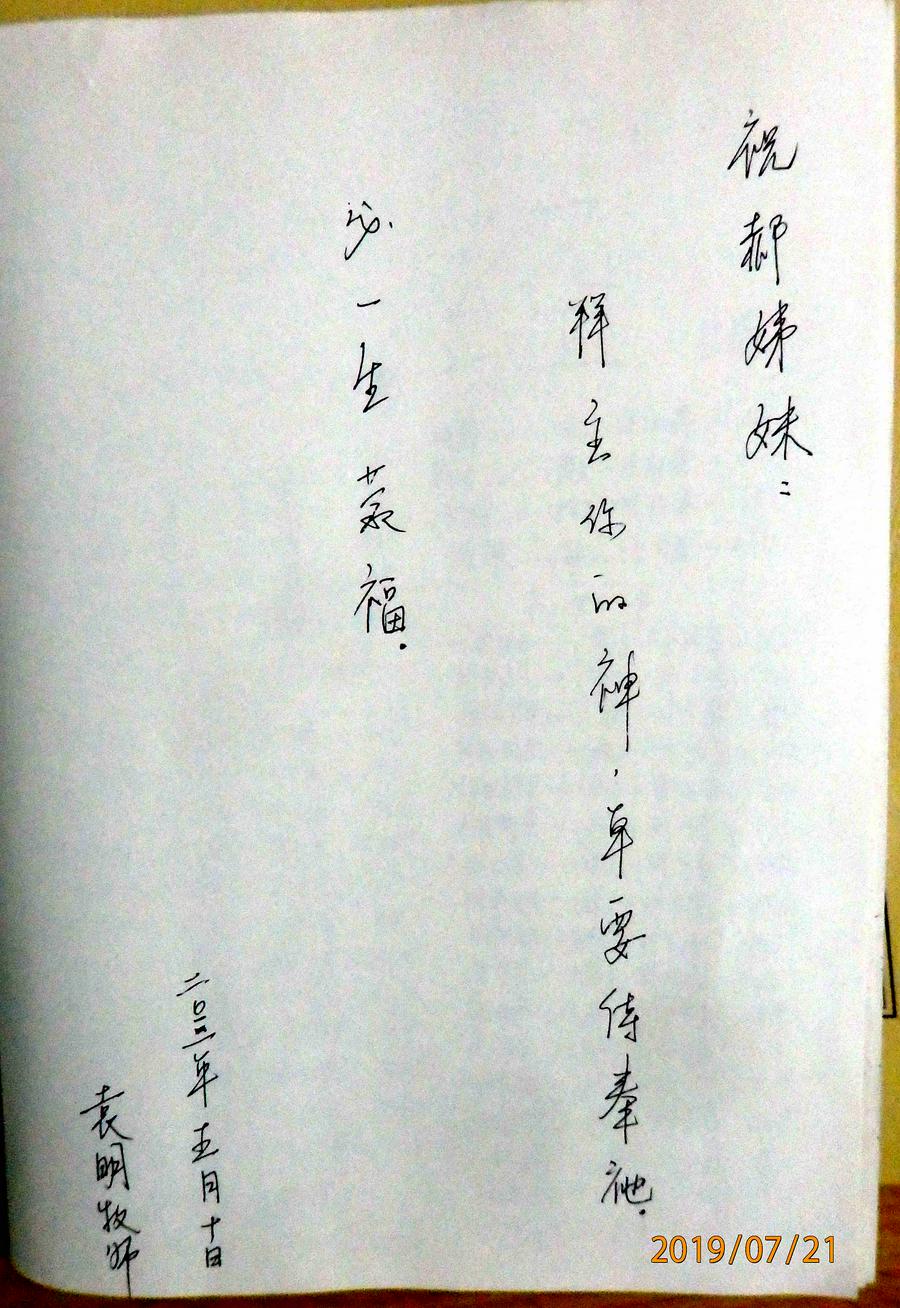 祝郝姊妹：
拜主你的神，单要侍奉祂.
必一生蒙福.
二0一三年五月十日
袁明牧师
2019/07/21